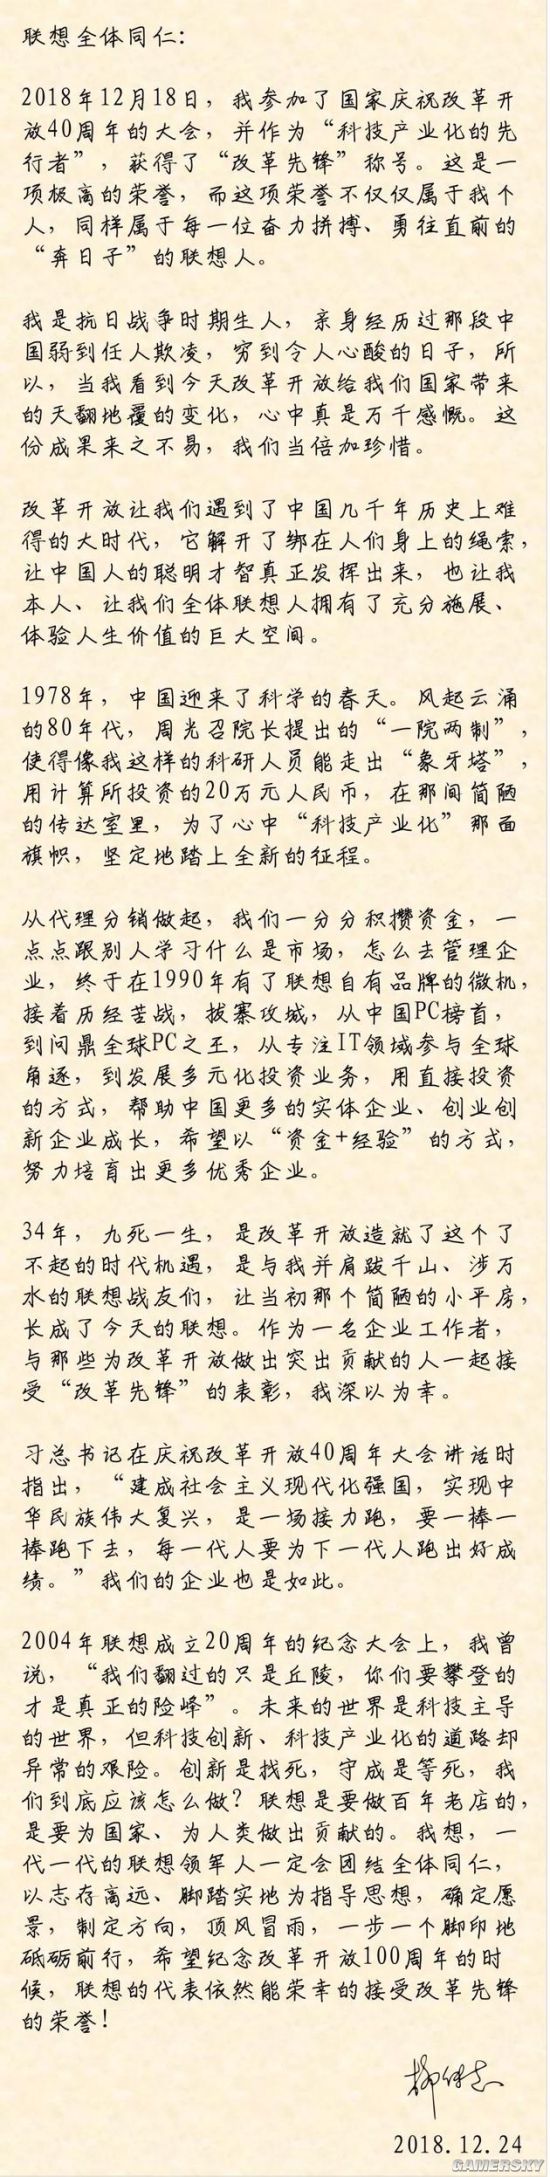 联想全体同仁：
2018年12月18日，我参加了国家庆祝改革开
放40周年的大会，并作为“科技产业化的先
行者”，获得了“改革先锋”称号。这是一
项极高的荣誉，而这项荣誉不仅仅属于我个
人，同样属于每一位奋力拼搏、勇往直前的
“奔日子”的联想人。
我是抗日战争时期生人，亲身经历过那段中
国弱到任人欺凌，穷到令人心酸的日子，所
以，当我看到今天改革开放给我们国家带来
的天翻地覆的变化，心中真是万千感慨。这
份成果来之不易，我们当倍加珍惜。
改革开放让我们遇到了中国几千年历史上难
得的大时代，它解开了绑在人们身上的绳索，
让中国人的聪明才智真正发挥出来，也让我
本人、让我们全体联想人拥有了充分施展、
体验人生价值的巨大空间。
1978年，中国迎来了科学的春天。风起云涌
的80年代，周光召院长提出的“一院两制”，
使得像我这样的科研人员能走出“象牙塔”，
用计算所投资的20万元人民币，在那间简陋
的传达室里，为了心中“科技产业化”那面
旗帜，坚定地踏上全新的征程。
从代理分销做起，我们一分分积攒资金，一
点点跟别人学习什么是市场，怎么去管理企
业，终于在1990年有了联想自有品牌的微机，
接着历经苦战，拔寨攻城，从中国PC榜首，
到问鼎全球PC之王，从专注IT领域参与全球
角逐，到发展多元化投资业务，用直接投资
的方式，帮助中国更多的实体企业、创业创
新企业成长，希望以“资金+经验”的方式，
努力培育出更多优秀企业。
34年，九死一生，是改革开放造就了这个了
不起的时代机遇，是与我并肩跋千山、涉万
水的联想战友们，让当初那个简陋的小平房，
长成了今天的联想。作为一名企业工作者，
与那些为改革开放做出突出贡献的人一起接
受“改革先锋”的表彰，我深以为幸。
习总书记在庆祝改革开放40周年大会讲话时
指出，“建成社会主义现代化强国，实现中
华民族伟大复兴，是一场接力跑，要一棒一
棒跑下去，每一代人要为下一代人跑出好成
绩。”我们的企业也是如此。
2004年联想成立20周年的纪念大会上，我曾
说，“我们翻过的只是丘陵，你们要攀登的
才是真正的险峰”。未来的世界是科技主导
的世界，但科技创新、科技产业化的道路却
异常的艰险。创新是找死，守成是等死，我
们到底应该怎么做？联想是要做百年老店的，
是要为国家、为人类做出贡献的。我想，一
代一代的联想领军人一定会团结全体同仁，
以志存高远、脚踏实地为指导思想，确定愿
景，制定方向，顶风冒雨，一步一个脚印地
砥砺前行，希望纪念改革开放100周年的时
候，联想的代表依然能荣幸的接受改革先锋
的荣誉！
柳传志
2018.12.24
GAMERSKY